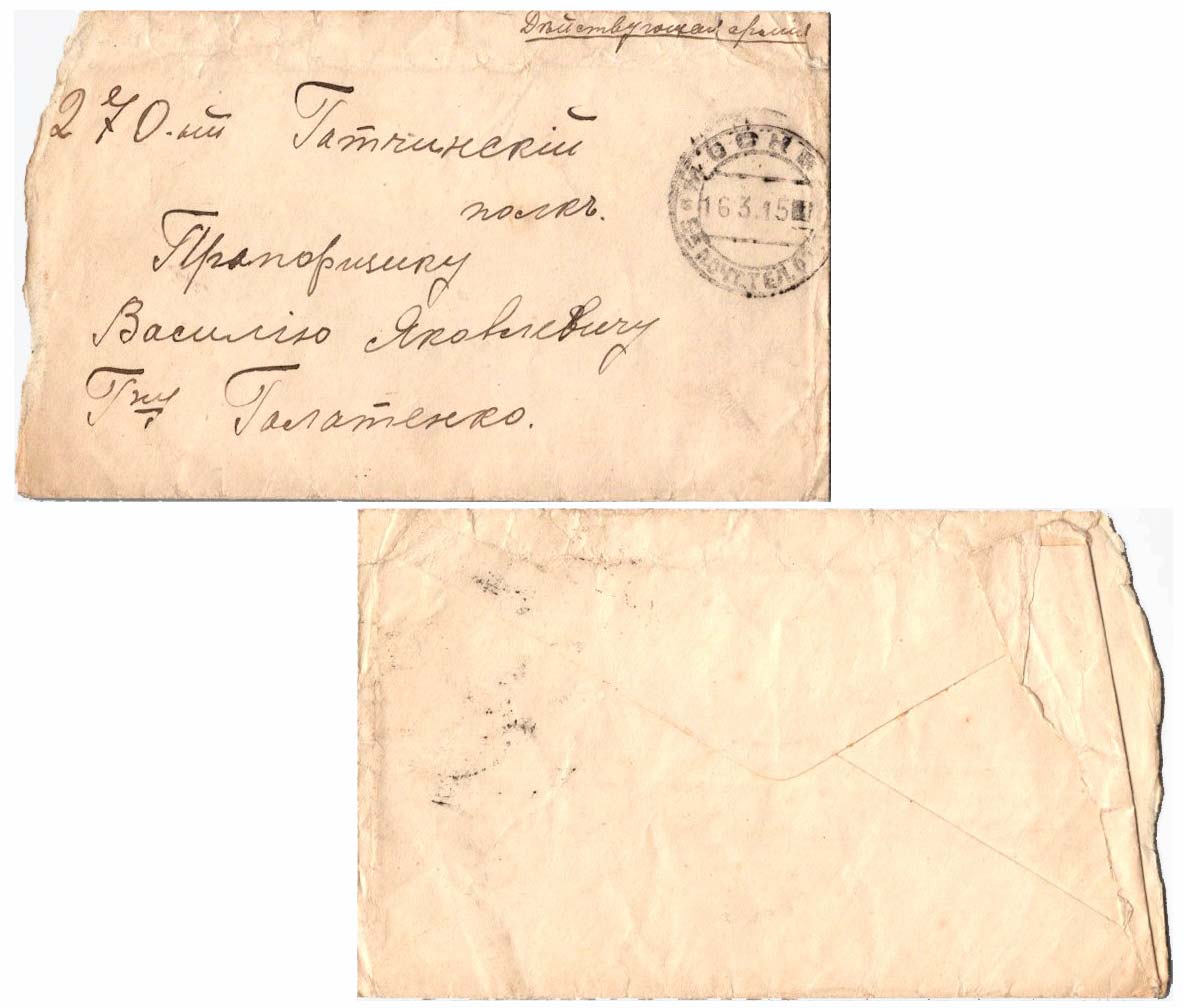 Дѣйствующая армія
270-ый Гатчинскій
полкъ.
Прапорщику
Василію Яковлевичу
Гну Галатенко.
МОСКВА
16.3.15